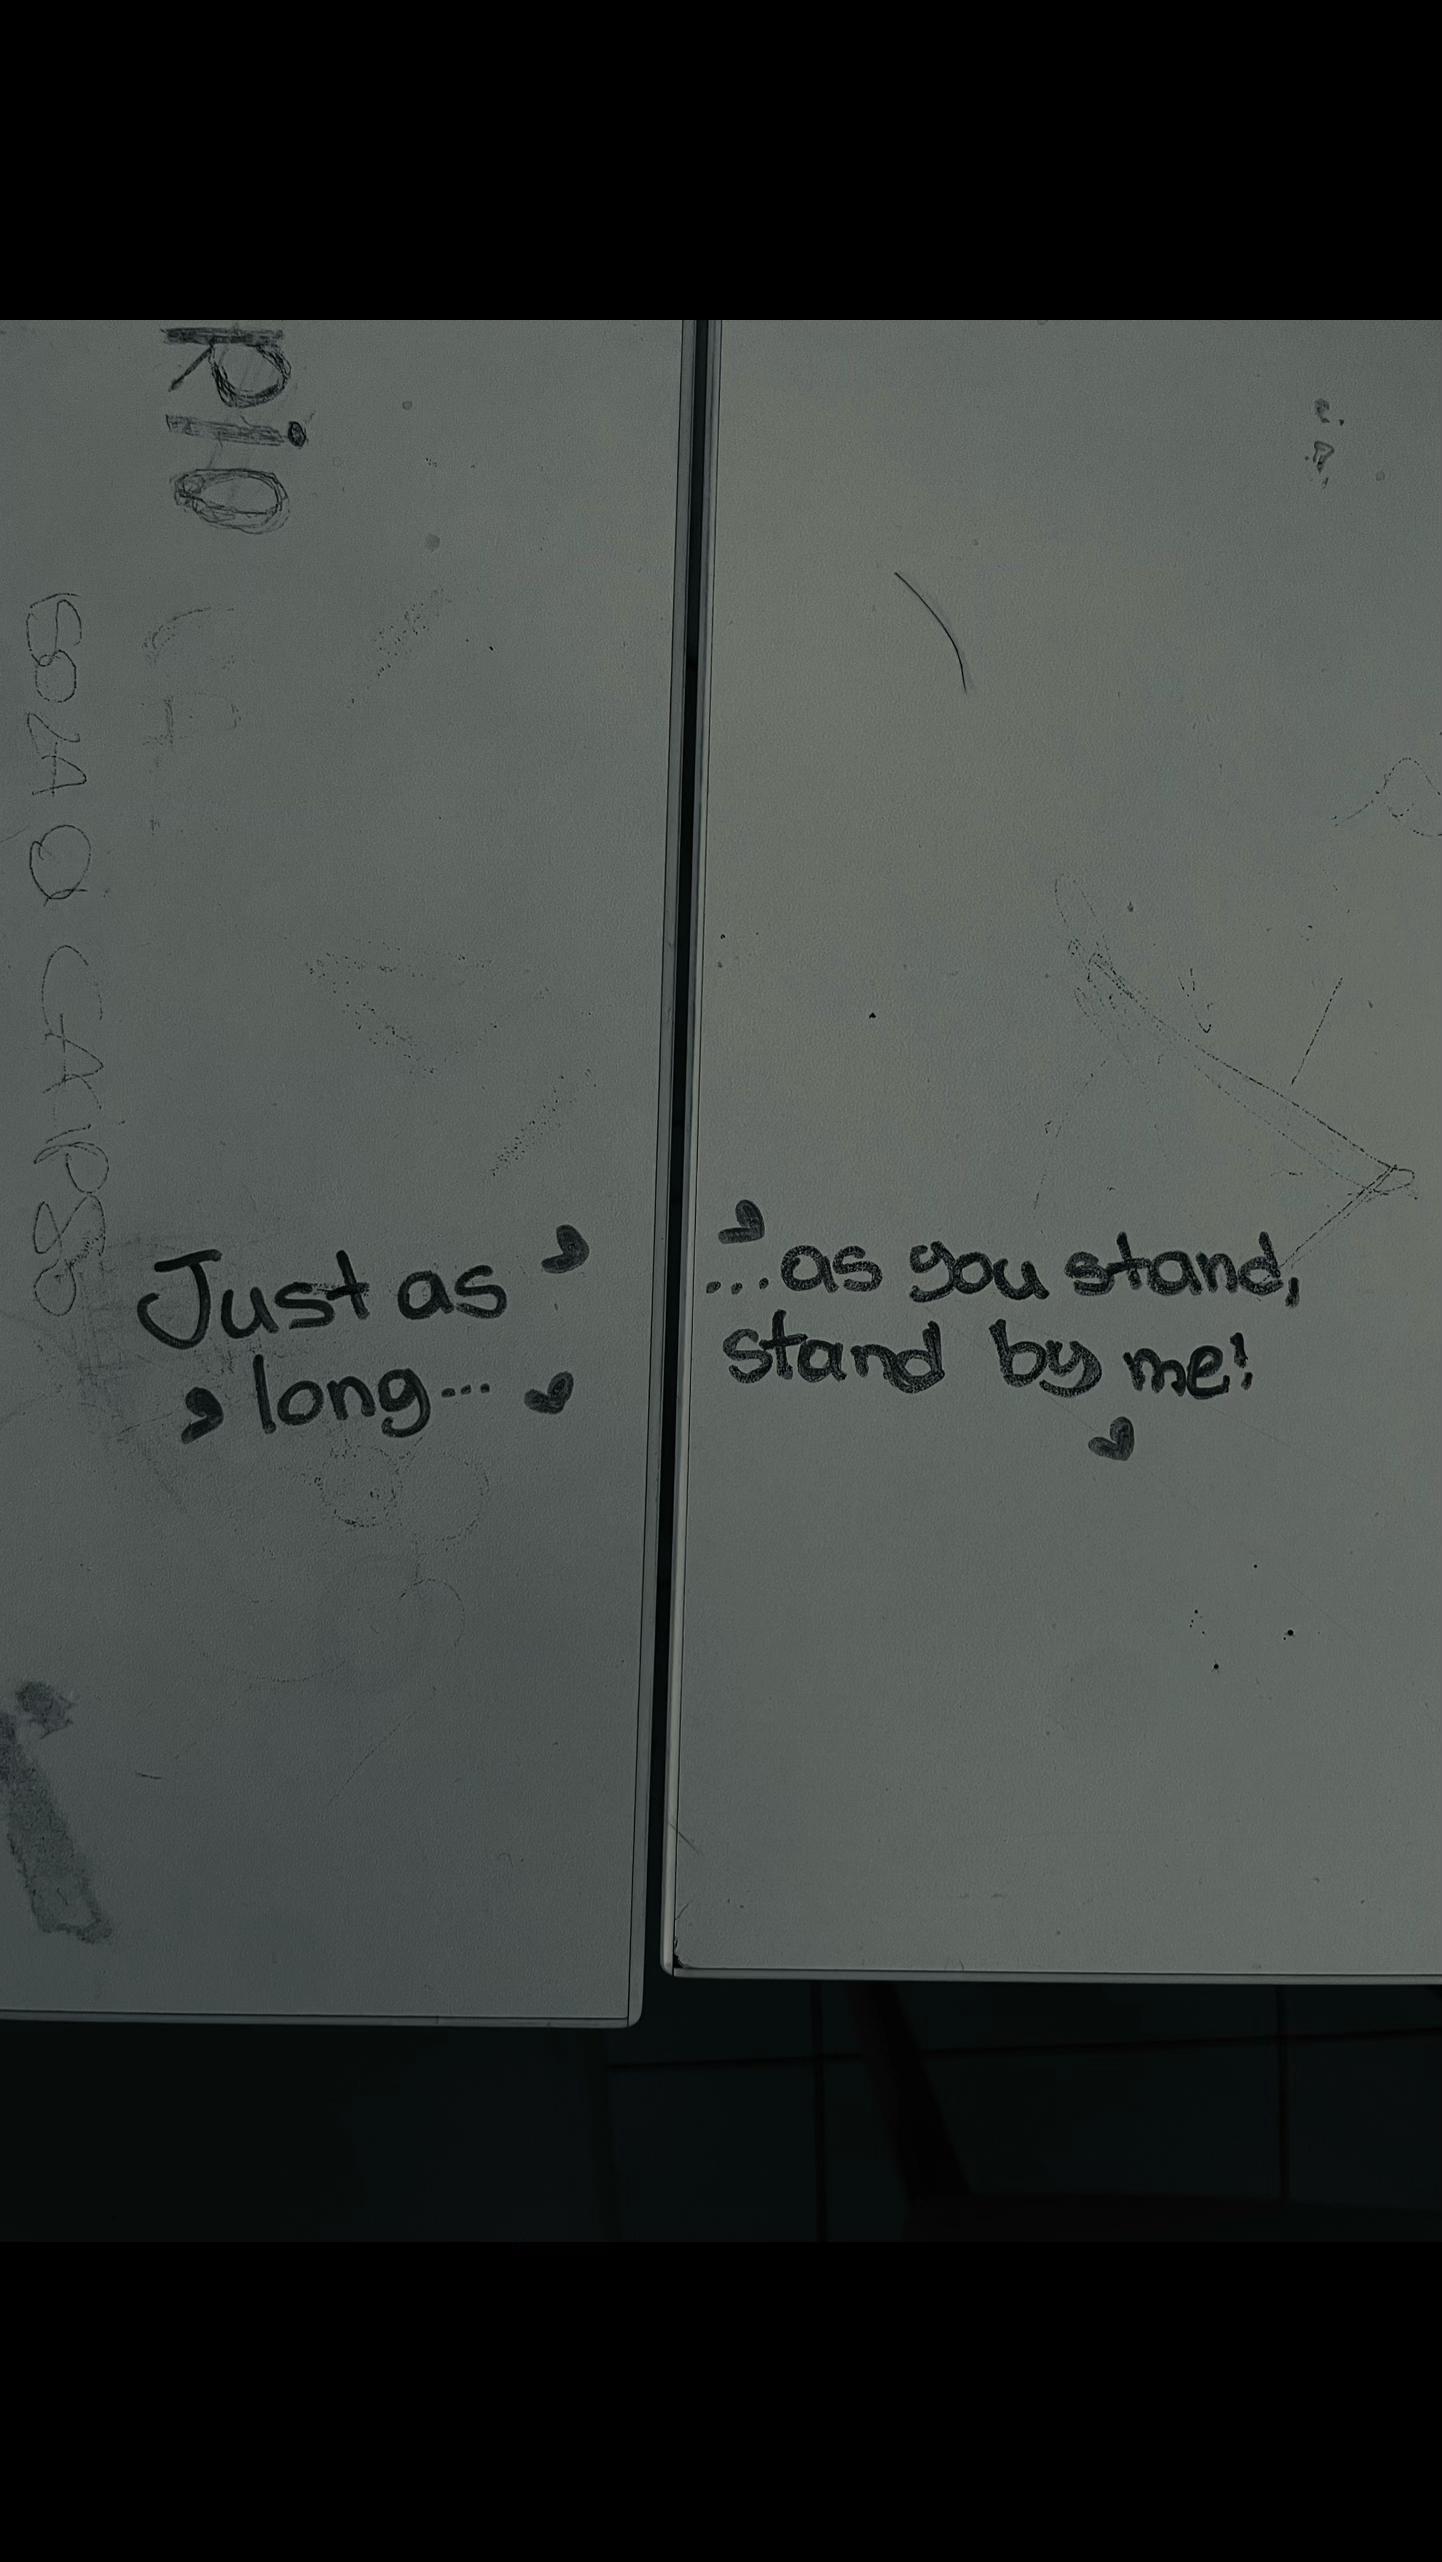 RiO
Just as
long...
...as you stand,
stand by me!